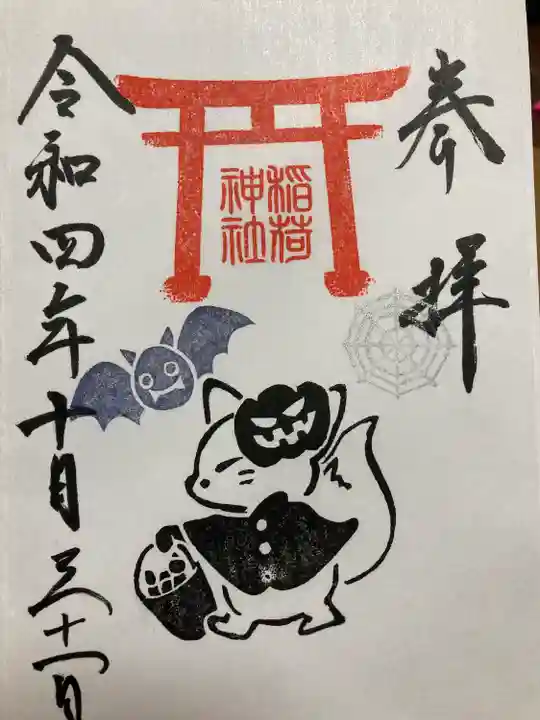 奉拝
稲荷
神社
令和四年十月三十一日